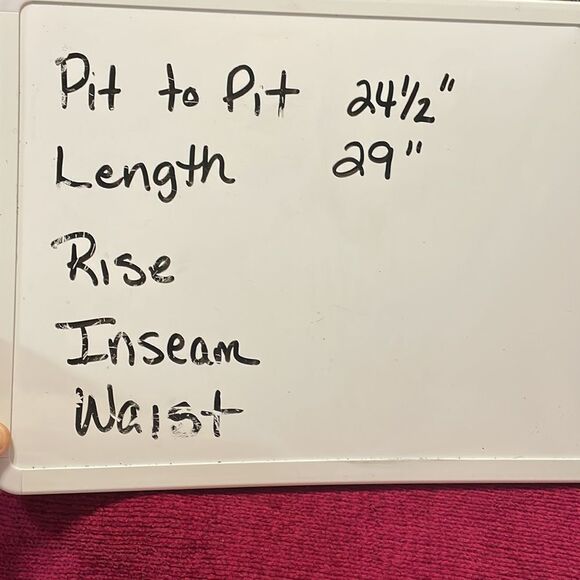 Pit to Pit 24½"
Length 29"
Rise
Inseam
Waist